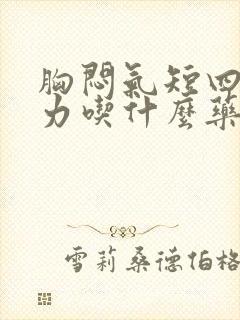 胸悶氣短四
力喫什麼藥
雪莉桑德伯格